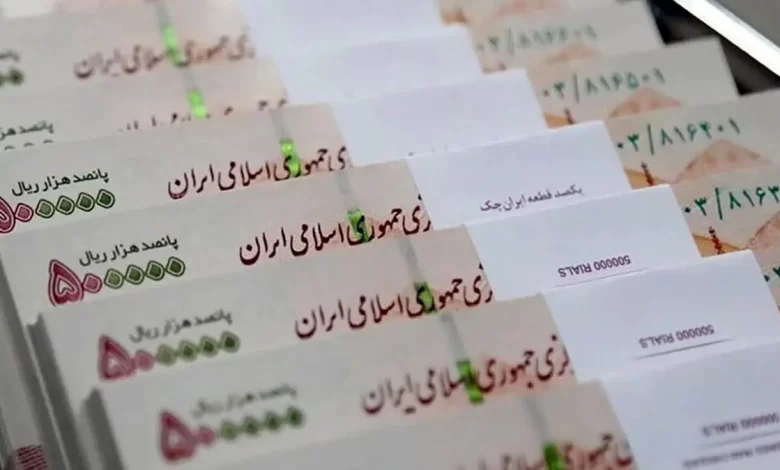 جمهوری اسلامی ایران
پانصد هزار ریال
جمهوری اسلامی ایران
۰۳/۸۱۶۵۰۱
پانصد هزار ریال
۵۰۰۰۰۰
جمهوری اسلامی ایران
۰۳/۸۱۶۴۰۱
پانصد هزار ریال
۵۰۰۰۰۰
جمهوری اسلامی ایران
یکصد قطعه ایران چک
پانصد هزار ریال
۵۰۰۰۰۰
جمهوری اسلامی ایران
500000 RIALS
پانصد هزار ریال
۵۰۰۰۰۰
جمهوری اسلامی ایران
500000 RIALS